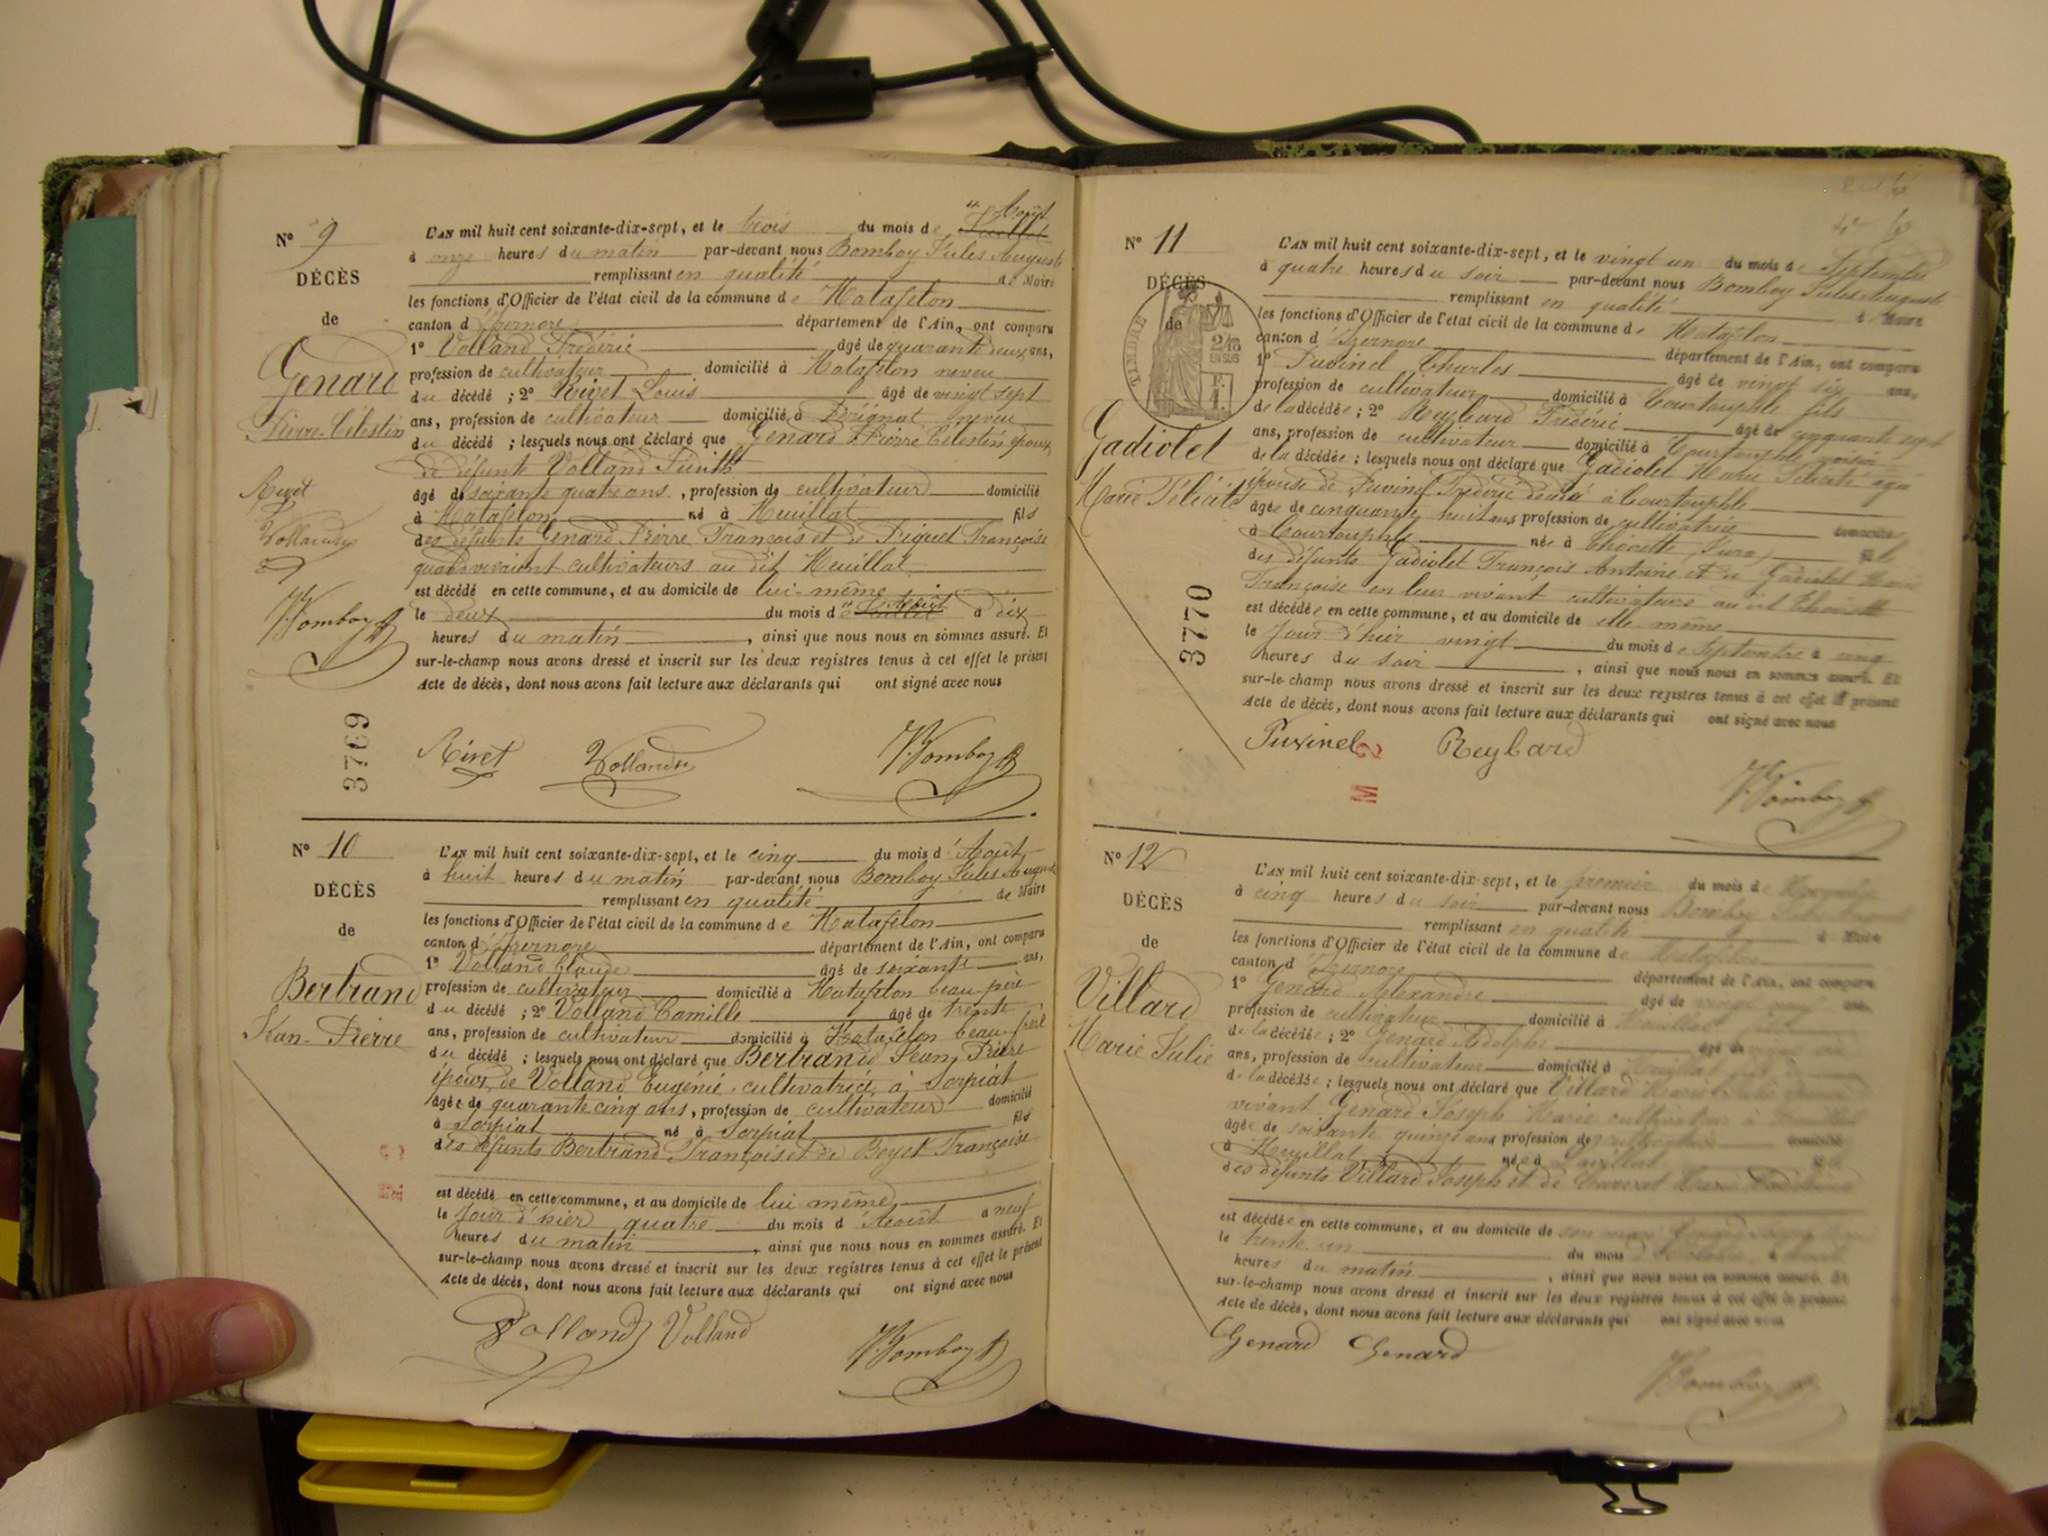 N° 9
DÉCÈS
de
Genard
Pierre-Célestin
Rivet
Volland
J. Bomboy
3769
L'AN mil huit cent soixante-dix-sept, et le trois du mois de Août
à onze heures du matin par-devant nous Bomboy Jules Auguste
remplissant en qualité de Maire
les fonctions d'Officier de l'état civil de la commune de Matafelon
canton d'Izernore département de l'Ain, ont comparu
1° Volland Frédéric âgé de quarante deux ans,
profession de cultivateur domicilié à Matafelon neveu
du décédé ; 2° Rivet Louis âgé de vingt sept
ans, profession de cultivateur domicilié à Pérignat neveu
du décédé ; lesquels nous ont déclaré que Genard Pierre Célestin époux
de défunte Volland
âgé de soixante quatre ans, profession de cultivateur domicilié
à Matafelon né à Heuillat fils
des défunts Genard Pierre François et de Piquet Françoise
quand vivaient cultivateurs au dit Heuillat
est décédé en cette commune, et au domicile de lui-même
le deux du mois d'Août à dix
heures du matin, ainsi que nous nous en sommes assuré. Et
sur-le-champ nous avons dressé et inscrit sur les deux registres tenus à cet effet le présent
Acte de décès, dont nous avons fait lecture aux déclarants qui ont signé avec nous
Rivet Volland J. Bomboy
N° 10
DÉCÈS
de
Bertrand
Jean-Pierre
L'AN mil huit cent soixante-dix-sept, et le cinq du mois d'Août
à huit heures du matin par-devant nous Bomboy Jules Auguste
remplissant en qualité de Maire
les fonctions d'Officier de l'état civil de la commune de Matafelon
canton d'Izernore département de l'Ain, ont comparu
1° Volland Claude âgé de soixante ans,
profession de cultivateur domicilié à Matafelon beau-père
du décédé ; 2° Volland Camille âgé de trente
ans, profession de cultivateur domicilié à Matafelon beau-frère
du décédé ; lesquels nous ont déclaré que Bertrand Jean Pierre
époux de Volland Eugénie cultivatrice à Sorpiat
âgé de quarante cinq ans, profession de cultivateur domicilié
à Sorpiat né à Sorpiat fils
des défunts Bertrand François et de Beyet Françoise
est décédé en cette commune, et au domicile de lui même
le Jour d'hier quatre du mois d'Août à neuf
heures du matin, ainsi que nous nous en sommes assuré. Et
sur-le-champ nous avons dressé et inscrit sur les deux registres tenus à cet effet le présent
Acte de décès, dont nous avons fait lecture aux déclarants qui ont signé avec nous
Volland Volland J. Bomboy
N° 11
DÉCÈS
de
TIMBRE
Gadiolet
Marie Félicité
3770
L'AN mil huit cent soixante-dix-sept, et le vingt un du mois de Septembre
à quatre heures du soir par-devant nous Bomboy Jules Auguste
remplissant en qualité de Maire
les fonctions d'Officier de l'état civil de la commune de Matafelon
canton d'Izernore département de l'Ain, ont comparu
1° Puvinel Charles âgé de vingt six ans,
profession de cultivateur domicilié à Courtouphle fils
de la décédée ; 2° Reybard Frédéric âgé de cinquante sept
ans, profession de cultivateur domicilié à Courtouphle voisin
de la décédée ; lesquels nous ont déclaré que Gadiolet Marie Félicité
épouse de Puvinel Frédéric à Courtouphle
âgée de cinquante huit ans profession de cultivatrice domiciliée
à Courtouphle née à Thoirette (Jura) fille
des défunts Gadiolet François Antoine et de Gadiolet Marie
Françoise en leur vivant cultivateurs au dit Thoirette
est décédée en cette commune, et au domicile de elle même
le Jour d'hier vingt du mois de Septembre à cinq
heures du soir, ainsi que nous nous en sommes assuré. Et
sur-le-champ nous avons dressé et inscrit sur les deux registres tenus à cet effet le présent
Acte de décès, dont nous avons fait lecture aux déclarants qui ont signé avec nous
Puvinel Reybard
J. Bomboy
M 2
N° 12
DÉCÈS
de
Villard
Marie Julie
L'AN mil huit cent soixante-dix-sept, et le premier du mois de Novembre
à cinq heures du soir par-devant nous Bomboy Jules
remplissant en qualité de Maire
les fonctions d'Officier de l'état civil de la commune de Matafelon
canton d'Izernore département de l'Ain, ont comparu
1° Genard Alexandre âgé de vingt neuf ans,
profession de cultivateur domicilié à
de la décédée ; 2° Genard Adolphe âgé de
ans, profession de cultivateur domicilié à
de la décédée ; lesquels nous ont déclaré que Villard Marie Julie
vivant Genard Joseph Marie cultivateur à
âgée de soixante quinze ans profession de domiciliée
à Heuillat née à fille
des défunts Villard Joseph et de Marie
est décédée en cette commune, et au domicile de son mari Genard Joseph
le trente un du mois d'Octobre à
heures du matin, ainsi que nous nous en sommes assuré. Et
sur-le-champ nous avons dressé et inscrit sur les deux registres tenus à cet effet le présent
Acte de décès, dont nous avons fait lecture aux déclarants qui ont signé avec nous
Genard Genard
J. Bomboy